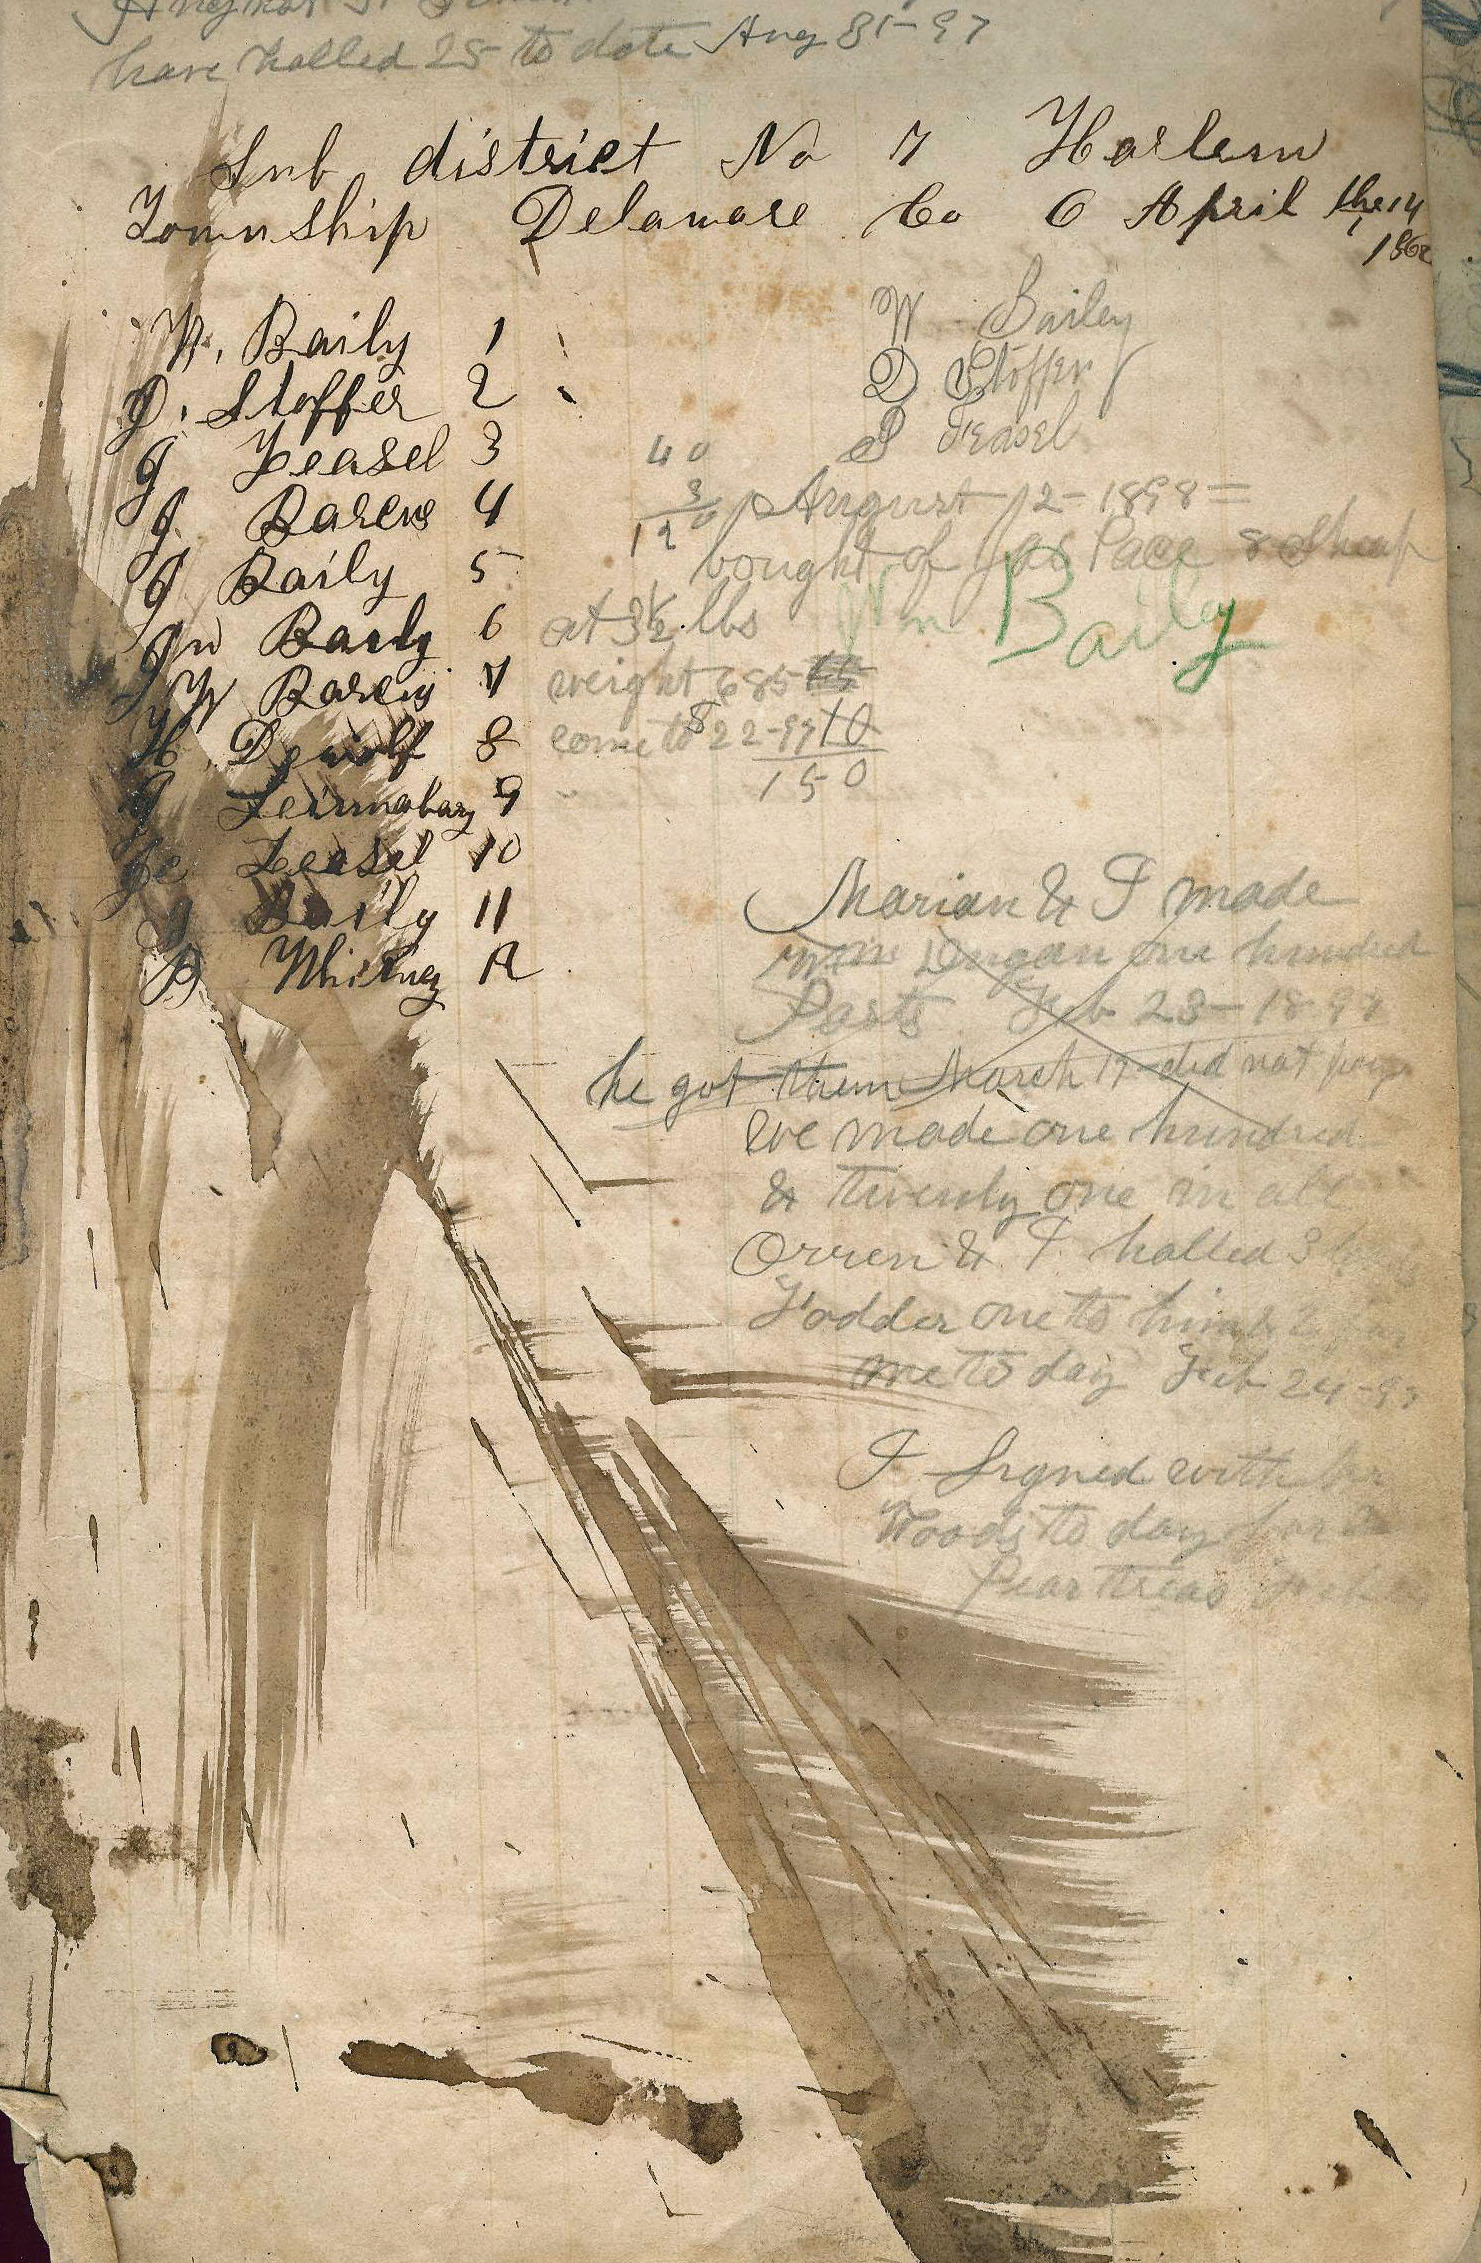 have halled 25 to date Aug 31-97
Sub district No 7 Harlem
Township Delaware Co O April the 14
186
W. Baily 1
D. Stoffer 2
J Feasel 3
J Barcus 4
J Baily 5
Jn Baily 6
W Barcus 7
H. Dewolf 8
J 9
Ge Feasel 10
J Baily 11
B Whitney 12
W Bailey
D Stoffer
J Feasel
40
3
120
August 12-1898=
bought of Jas Pace 8 Sheap
at 3½ lbs
Wm Baily
weight 685
come to $22-97
10
150
Marian & I made
one hundred
Posts Feb 23-1897
he got them March 17 did not pay
we made one hundred
& twenty one in all
Orren & I halled 3
Fodder one to him &
me to day Feb 24-97
I Signed with
Woods to day for
Pear treas